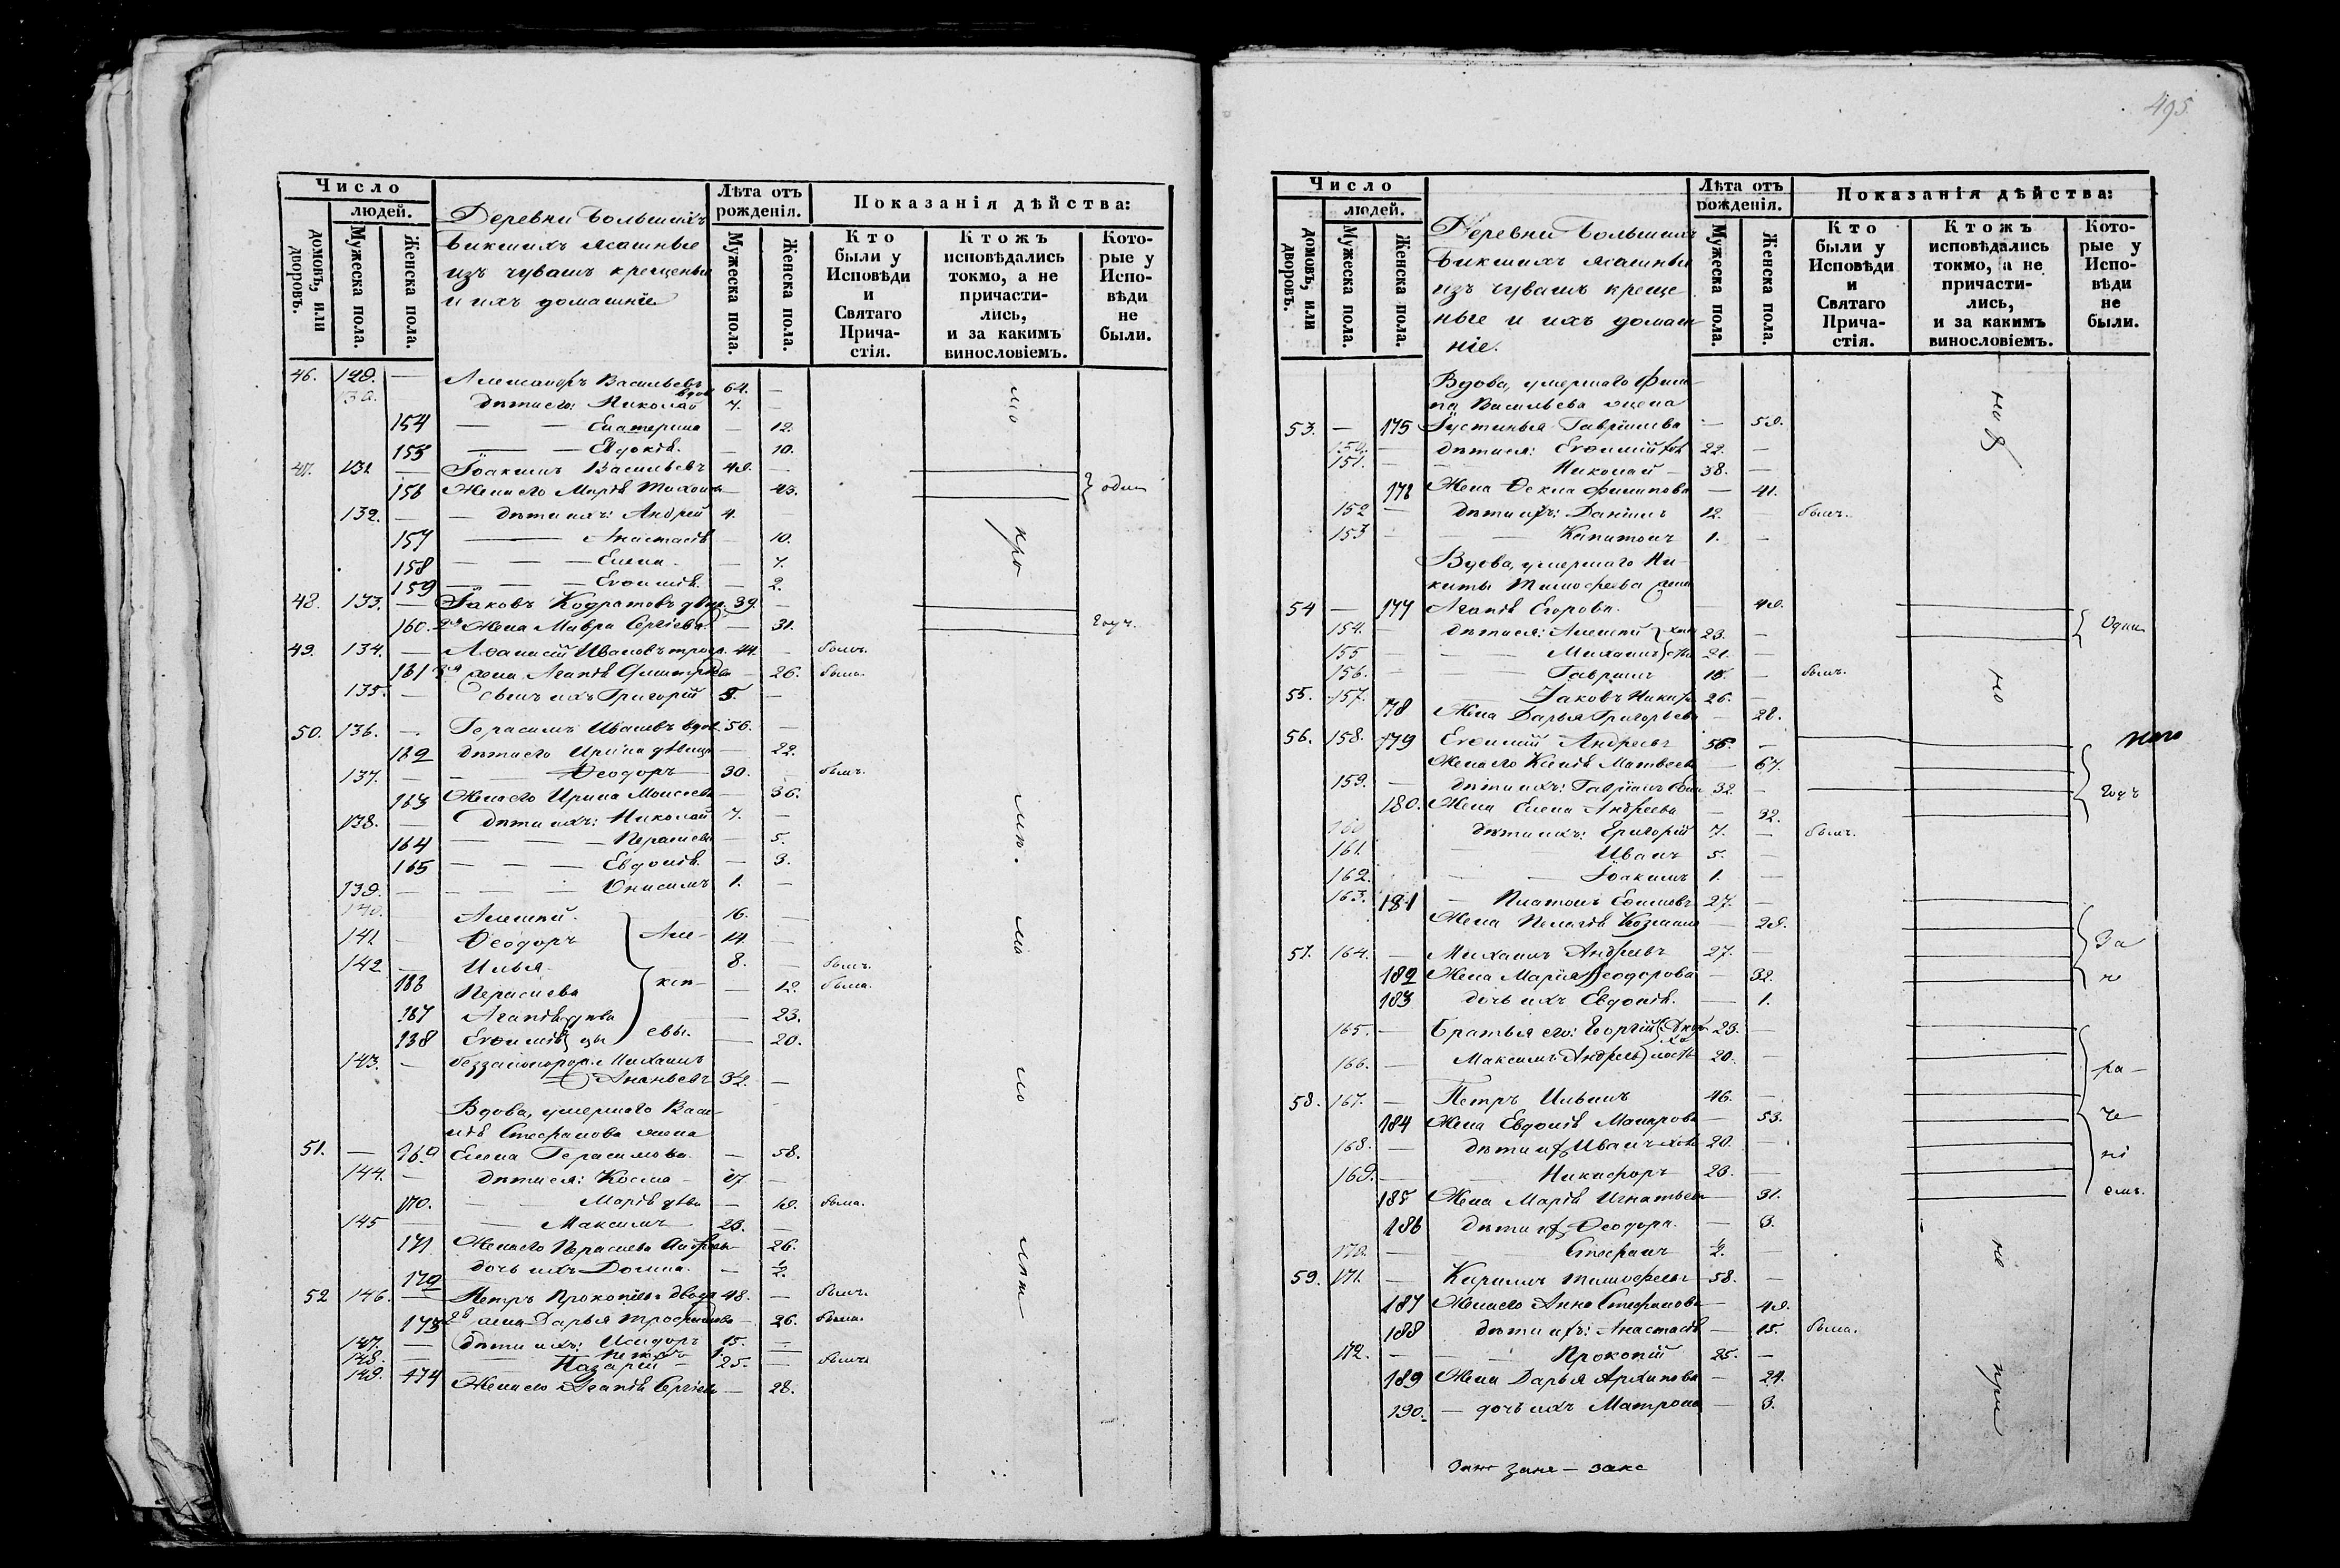 Число
людей.
домовъ, или дворовъ.
Мужеска пола.
Женска пола.
Деревни Большихъ
Бикшихъ ясашные
изъ чувашъ крещеные
и ихъ домашніе
Лѣта отъ
рожденія.
Мужеска пола.
Женска пола.
Показанія дѣйства:
Кто
были у
Исповѣди
и
Святаго
Прича-
стія.
Ктожъ
исповѣдались
токмо, а не
причасти-
лись,
и за какимъ
винословіемъ.
Кото-
рые у
Испо-
вѣди
не
были.
46. 129. — Александръ Васильевъ вдов 64. —
130. — дѣти его: Николай 7. —
154 — — Екатерина — 12.
155 — — Евдокія. — 10.
47. 131 — Іоакимъ Васильевъ 49. —
156 Жена его Марѳа Тихонова — 43. один
132. — — дѣти ихъ: Андрей 4. —
157 — Анастасія — 10.
158 — — — Елена. — 7.
159 — — — Евѳимія. — 2.
48. 133. — Іаковъ Кодратовъ двое. 39. —
160. 2я Жена Мавра Сергіева — 31. годъ.
49. 134. — Аѳанасій Ивановъ троеж. 44. — былъ.
161 3я жена Агапія — 26. была.
135. — сынъ ихъ Григорій 5. —
50. 136. — Герасимъ Ивановъ вдов. 56. —
162 дѣти его Ирина дѣвица — 22.
137. — — — Ѳеодоръ 30. былъ.
163 Жена его Ирина Моисеева — 36.
138. — дѣти ихъ: Николай 7. —
164 — — — Параскева — 5.
165 — — — Евдокія. — 3.
139. — — — Онисимъ 1. —
140. Алексѣй. 16. —
141 — Ѳеодоръ Але- 14. —
142 — Илья. 8. — былъ.
166 Параскева ксѣ- — 12. была.
167 Агапія дѣви — 23.
168 Евѳимія цы евы. — 20.
143. — Михаилъ
Ананьевъ 32. —
Вдова, умершаго Васи-
лія Стефанова жена
51. — 169 Елена Герасимова. — 58.
144. — дѣти ея: Косма 17 —
170. — — Марія дѣви — 19. была.
145 — — Максимъ 23. —
171 Жена его Параскева Андреева — 26.
172 дочь ихъ Домна. — ½.
52 146. — Петръ Прокопьевъ двоеж 48. — былъ.
173 2я жена Дарья Трофимова — 26. была.
147. — дѣти ихъ: Исидоръ 15. —
148. — — Петръ 1. —
149. — Назарій 25. — былъ
174 Жена его Агапія Сергіева — 28.
495.
Число
людей.
домовъ, или дворовъ.
Мужеска пола.
Женска пола.
Деревни Большихъ
Бикшихъ ясашные
изъ чувашъ креще
ные и ихъ домаш
ніе.
Лѣта отъ
рожденія.
Мужеска пола.
Женска пола.
Показанія дѣйства:
Кто
были у
Исповѣди
и
Святаго
Прича-
стія.
Ктожъ
исповѣдались
токмо, а не
причасти-
лись,
и за какимъ
винословіемъ.
Кото-
рые у
Испо-
вѣди
не
были.
Вдова, умершаго Филип-
па Васильева жена
53. — 175 Іустинья Гавріилова — 59.
150. — дѣти ея: Евѳимій 22. —
151. — Николай — 38. —
176 Жена Ѳекла Филипова — 41.
152 — дѣти ихъ: Даніилъ 12. — былъ.
153 — — — Капитонъ 1. —
Вдова, умершаго Ни-
киты Тимофеева жена
54 — 177 Агапія Егорова. — 49.
154. — дѣти ея: Алексѣй хол 23. — Один
155 — — — Михаилъ 21. —
156. — — — Гавріилъ 18. — былъ.
55. 157. — Іаковъ Никит 26. —
178 Жена Дарья Григорьева — 28.
56. 158. 179 Евѳимій Андреевъ 56. —
Жена его Ксенія Матвеева — 67.
159. — дѣти ихъ: Гавріилъ 32. — годъ
180. Жена Елена Андреева — 32.
160 дѣти ихъ: Григорій 7. — былъ.
161. — — Иванъ 5. —
162. — — Іоакимъ 1. —
163. 181 — Платонъ Евѳимовъ 27. —
Жена Пелагія Козмина — 29.
57. 164. — Михаилъ Андреевъ 27. — За
182 Жена Марія Ѳеодорова — 32.
183 дочь ихъ Евдокія. — 1.
165. — Братья его: Георгій 23. —
166. — Максимъ Андреевъ 20. — ра-
58. 167. — Петръ Ильинъ 46. — че
184 Жена Евдокія Макарова — 53.
168. — дѣти их Иванъ хол 20. — ні
169. — — Никифоръ 23. — емъ.
185 Жена Марія Игнатьева — 31.
186 дѣти их Ѳеодора. — 3.
170. — — — Стефанъ ½. —
59. 171. — Кириллъ Тимофеевъ 58. —
187 Жена его Анна Стефанова — 49.
188 дѣти ихъ: Анастасія — 15. была.
172. — — Прокопій 25. —
189 Жена Дарья Архипова — 24.
190. — дочь ихъ Матрона — 3.